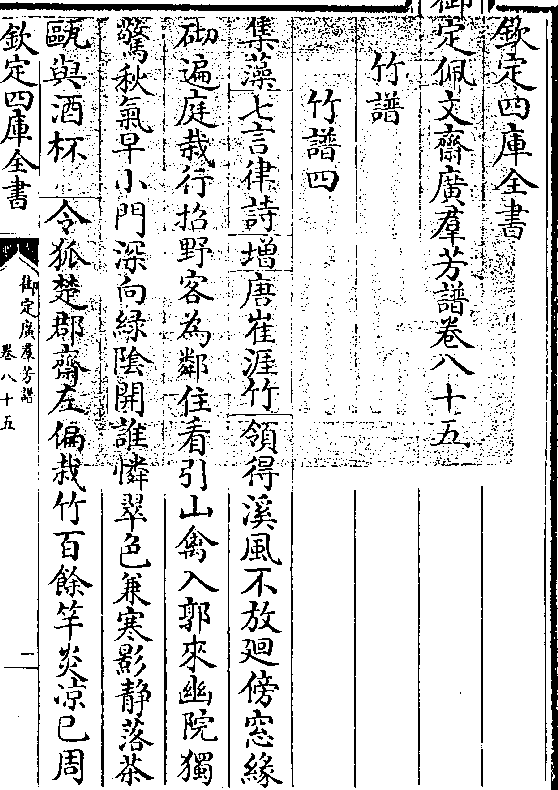 欽定四庫全書
御定佩文齋廣羣芳譜卷八十五
竹譜
竹譜四
集藻七言律詩增唐崔涯竹領得溪風不放廻傍窓緣
砌遍庭栽行招野客為鄰住看引山禽入郭來幽院獨
驚秋氣早小門深向緑陰開誰憐翠色兼寒影静落茶
甌與酒杯 令狐楚郡齋左偏栽竹百餘竿炎凉已周
欽定四庫全書
御定廣羣芳譜
卷八十五
一